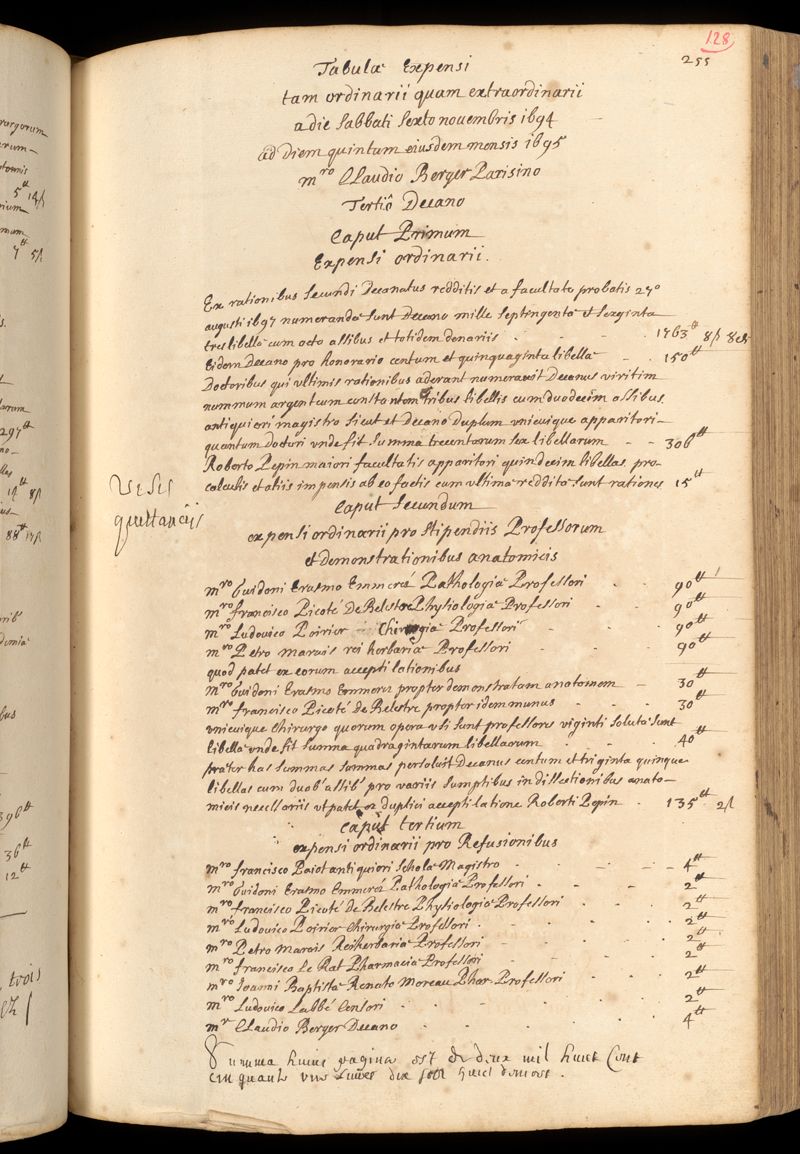 128
255
Tabula Expensi
tam ordinarii quam extraordinarii
a die Sabbati Sexto novembris 1694
ad diem quintum eiusdem mensis 1695
mro Claudio Berger Parisino
Tertiô Decano
Caput Primum
Expensi ordinarii.
Ex rationibus Secundi Decanatus redditis et a facultate probatis 27o
augusti 1697 numeranda sunt Decano mille septingenta et sexginta
tres libella cum octo assibus et totidem denariis 1763tt 8s 8d
Eidem Decano pro honorario centum et quinquaginta libella 150tt
Doctoribus qui ultimis rationibus aderant numeravit Decanus viritim
nummum argenteum constantem tribus libellis cum duodecim assibus
antiquiori magistro sicut et Decano duplum unicuique apparitori
quantum Doctori unde fit summa trecentarum sex libellarum 306tt
Roberto Pepin maiori facultatis apparitori quindecim libellas pro
calculis et aliis impensis ab eo factis cum ultima reddita sunt rationes 15tt
Visis
quittanciis
Caput Secundum
expensi ordinarii pro Stipendiis Professorum
et demonstrationibus anatomicis
mro Guidoni Erasmo Emmerez Pathologia Professori 90tt
mro francisco Picoté De Belestre Physiologia Professori 90tt
mro Ludovico Poirier Chirurgia Professori 90tt
mro Petro Marais rei herbaria Professori 90tt
quod patet ex eorum acceptilationibus
mro Guidoni Erasmo Emmerez propter demonstratam anatomem 30tt
mro francisco Picoté de Belestre propter idem munus 30tt
unicuique Chirurgo quorum opera usi sunt professores viginti soluta sunt
libella unde fit summa quadragintarum libellarum 40tt
prater has summas summas persoluit Decanus centum et triginta quinque
libellas cum duob' assib' pro variis sumptibus in dissectionibus anato-
micis necessariis ut patet ex duplici acceptilatione Roberti Pepin 135tt 2s
Caput tertium
expensi ordinarii pro Refusionibus
mro francisco Paiot antiquiori Schola Magistro 4tt
mro Guidoni Erasmo Emmerez Pathologia Professori 2tt
mro francisco Picoté de Belestre Physiologia Professori 2tt
mro Ludovico Poirier Chirurgia Professori 2tt
mro Petro Marais Rei herbaria Professori 2tt
mro francisco Le Rat Pharmacia Professori 2tt
mro Joanni Baptista Renato Moreau Phar. Professori 2tt
mro Ludovico Labbé Censori 2tt
mr Claudio Berger Decano 4tt
Summa huius pagina est de deux mil huict Cent
cinquante une livres dix solz huict deniers.